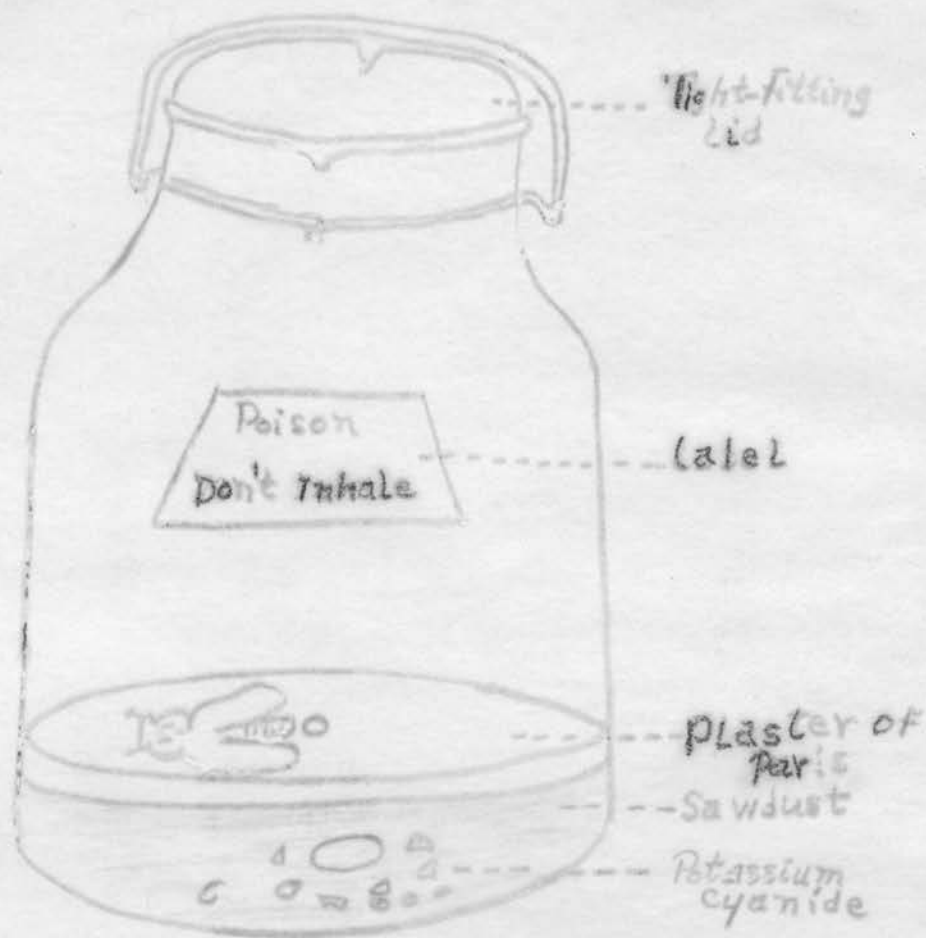 Tight-fitting
Lid
Poison
Don't Inhale
Lalel
Plaster of
Paris
Sawdust
Potassium
cyanide